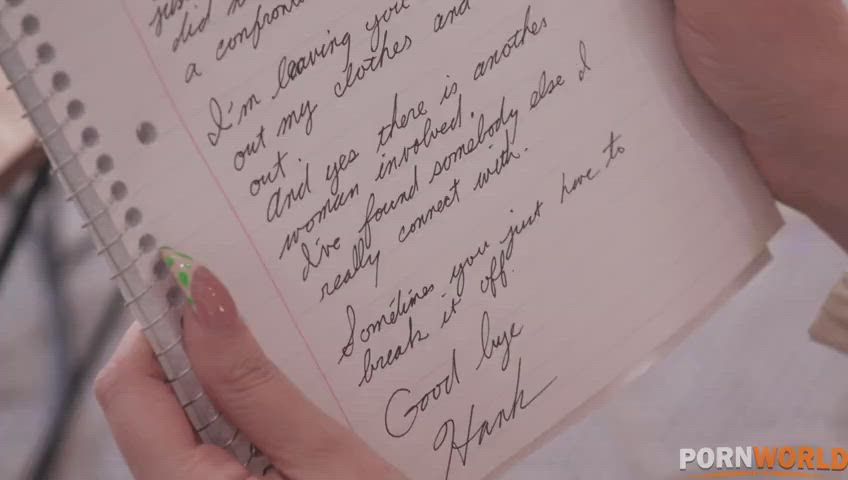 did
a confronta
I'm leaving you
out my clothes and
out.
And yes there is another
woman involved.
I've found somebody else I
really connect with.
Sometimes you just have to
break it off.
Good bye
Hank
PORNWORLD